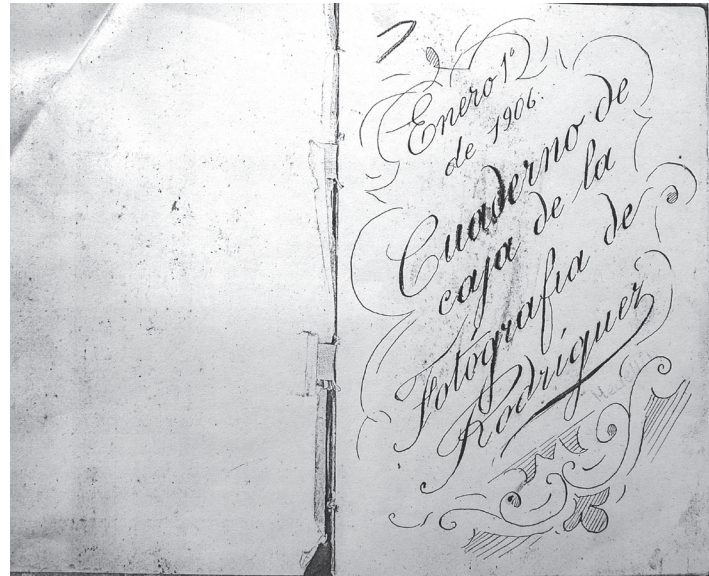 Enero 1º
de 1906.
Cuaderno de
caja de la
Fotografia de
Rodriguez